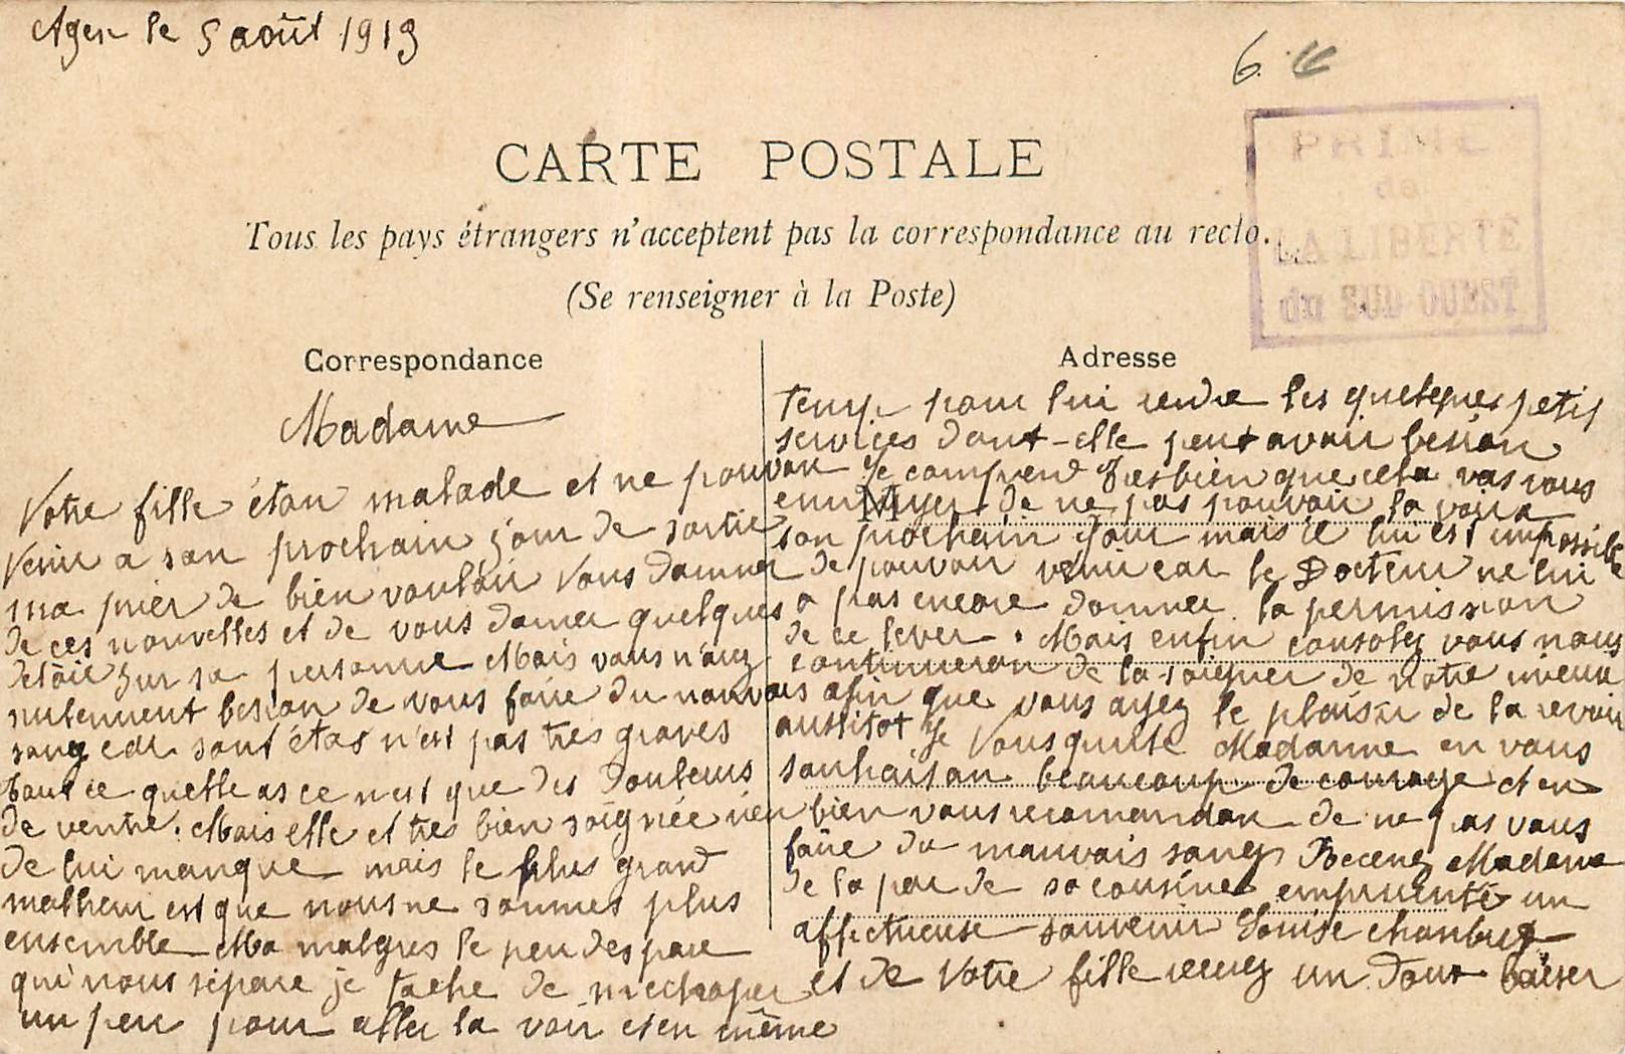 Agen le 5 août 1913
6
PRIME
de
LA LIBERTÉ
du SUD-OUEST
CARTE POSTALE
Tous les pays étrangers n'acceptent pas la correspondance au recto.
(Se renseigner à la Poste)
Correspondance
Madame
Votre fille étan malade et ne pouvan
venir a son prochain jour de sortie
ma prier de bien vouloir vous donner
de ces nouvelles et de vous donner quelques
détail sur sa personne Mais vous n'avez
nulennent besoin de vous faire du mauvais
sang car sont état n'est pas très graves
tout ce quelle as ce n'est que des douleurs
de ventre. Mais elle et très bien soignée rien
de lui manque mais le plus grand
malheur est que nous ne sommes plus
ensemble Ma malgres le peu despace
qui nous sépare je tache de mechaper
un peu pour aller la voir et en même
Adresse
temp pour lui rendre les quelques petis
services dont-elle peut avoir besion
Je comprend très bien que cela vas vous
ennuyer de ne pas pouvoir la voir a
M
son prochain jour mais il lui est impossible
de pouvoir venir car le Docteur ne lui
a pas encore donner la permission
de ce lever. Mais enfin consolez vous nous
continueron de la soigner de notre mieux
afin que vous ayez le plaisir de la revoir
aussitot Je vous quitte Madame en vous
souhaitan beaucoup de courage et en
bien vous recomandan de ne pas vous
faire du mauvais sang Recevez Madame
de la par de sa cousine emprunté un
affectueuse souvenir Louise
et de votre fille recevez un doux baiser